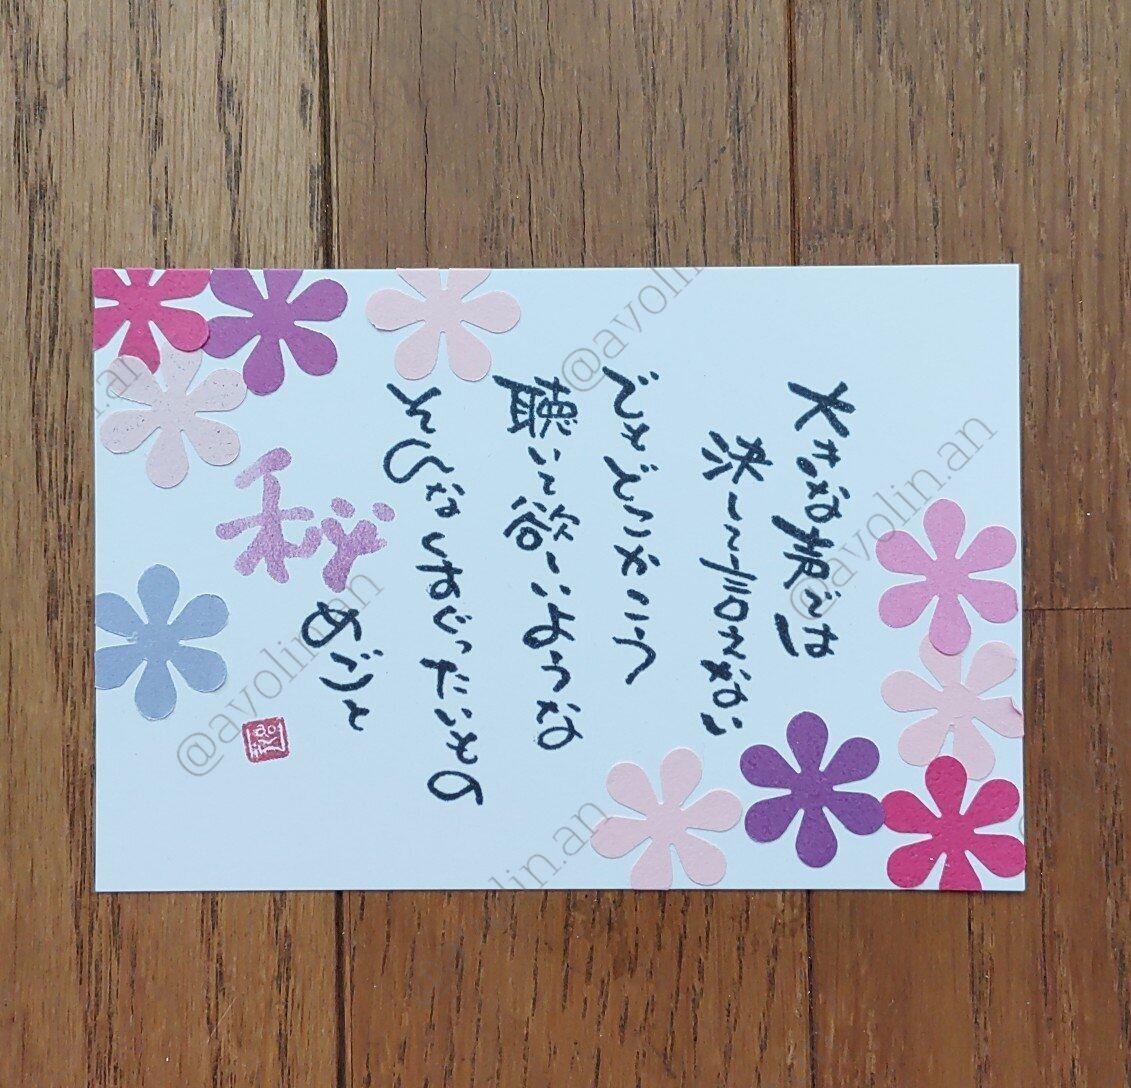 大きな声では
決して言えない
でもどこかこう
聴いて欲しいような
そんなくすぐったいもの
秘
めごと
@avolin.an
@avolin.an
@avolin.an
@avolin.an